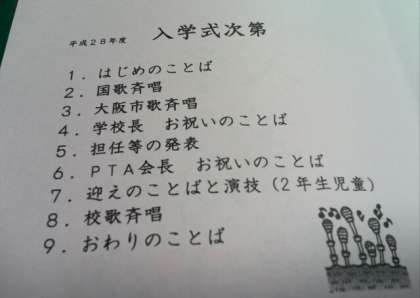 平成28年度 入学式次第
1. はじめのことば
2. 国歌斉唱
3. 大阪市歌斉唱
4. 学校長 お祝いのことば
5. 担任等の発表
6. PTA会長 お祝いのことば
7. 迎えのことばと演技(2年生児童)
8. 校歌斉唱
9. おわりのことば